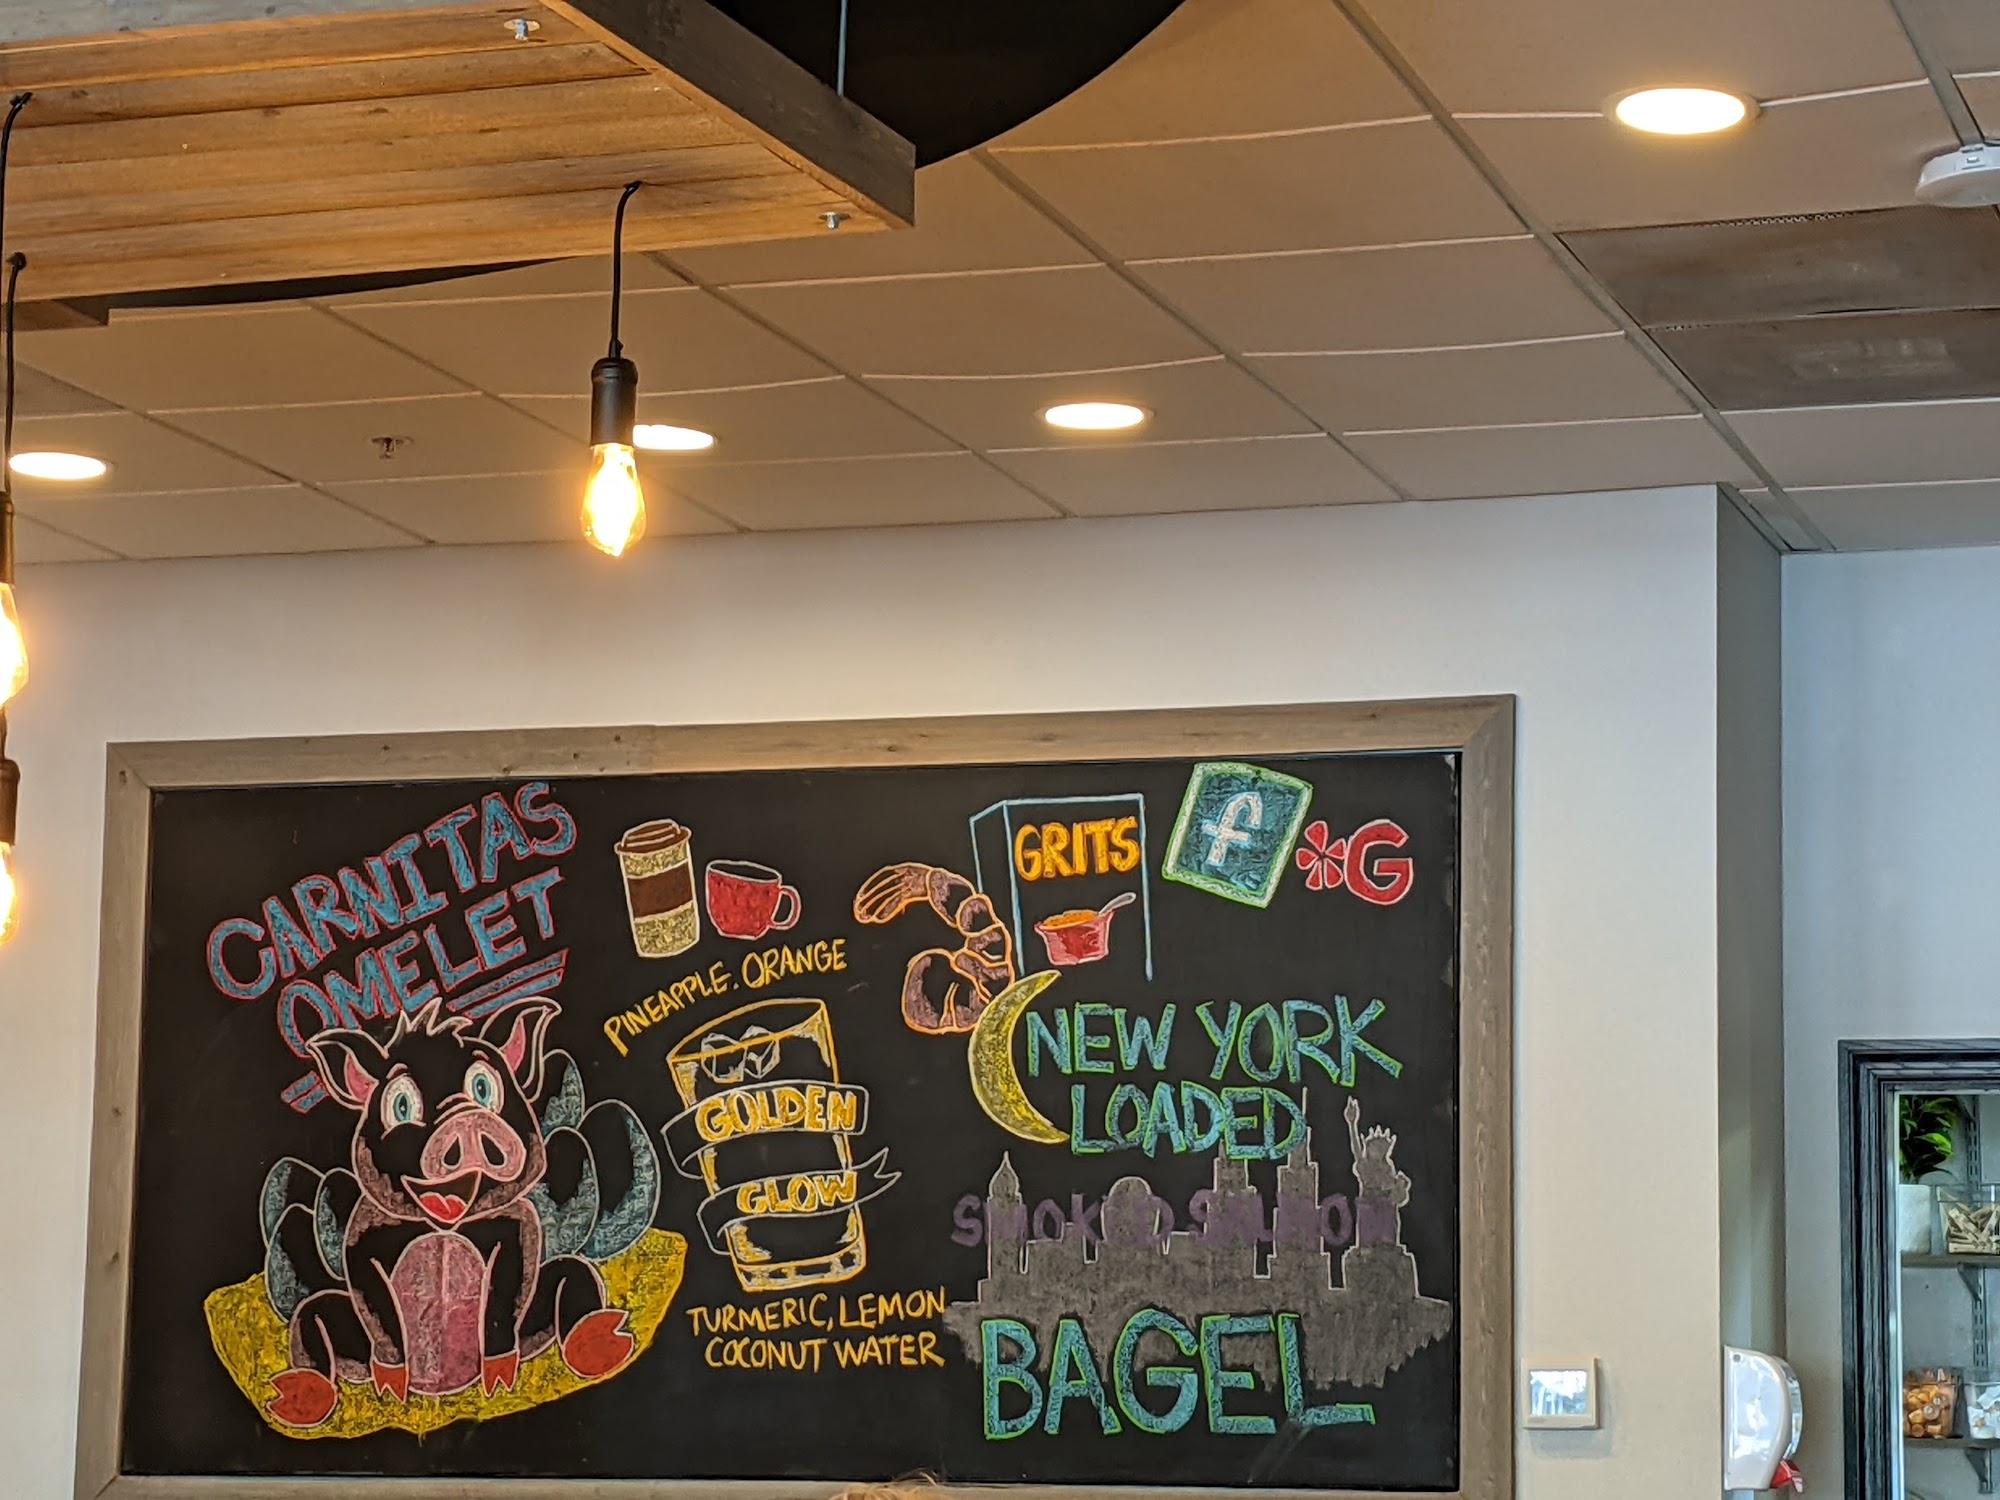 CARNITAS
OMELET
PINEAPPLE. ORANGE
GOLDEN
GLOW
TURMERIC, LEMON
COCONUT WATER
GRITS
f
G
NEW YORK
LOADED
SMOKED SALMON
BAGEL